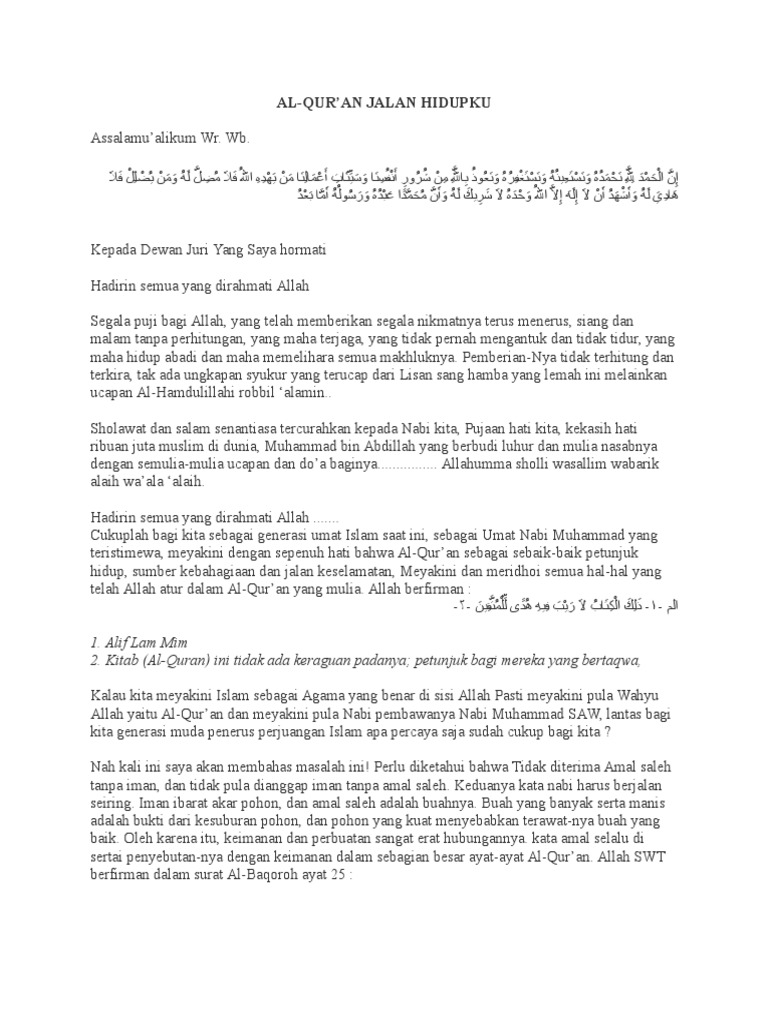 AL-QUR’AN JALAN HIDUPKU
Assalamu’alikum Wr. Wb.
إِنَّ الْحَمْدَ لِلَّهِ نَحْمَدُهُ وَنَسْتَعِيْنُهُ وَنَسْتَغْفِرُهُ وَنَعُوذُ بِاللَّهِ مِنْ شُرُورِ أَنْفُسِنَا وَسَيِّئَاتِ أَعْمَالِنَا مَنْ يَهْدِهِ اللهُ فَلاَ مُضِلَّ لَهُ وَمَنْ يُضْلِلْ فَلاَ
هَادِيَ لَهُ وَأَشْهَدُ أَنْ لاَ إِلَهَ إِلاَّ اللهُ وَحْدَهُ لاَ شَرِيكَ لَهُ وَأَنَّ مُحَمَّدًا عَبْدُهُ وَرَسُولُهُ أَمَّا بَعْدُ
Kepada Dewan Juri Yang Saya hormati
Hadirin semua yang dirahmati Allah
Segala puji bagi Allah, yang telah memberikan segala nikmatnya terus menerus, siang dan
malam tanpa perhitungan, yang maha terjaga, yang tidak pernah mengantuk dan tidak tidur, yang
maha hidup abadi dan maha memelihara semua makhluknya. Pemberian-Nya tidak terhitung dan
terkira, tak ada ungkapan syukur yang terucap dari Lisan sang hamba yang lemah ini melainkan
ucapan Al-Hamdulillahi robbil ‘alamin..
Sholawat dan salam senantiasa tercurahkan kepada Nabi kita, Pujaan hati kita, kekasih hati
ribuan juta muslim di dunia, Muhammad bin Abdillah yang berbudi luhur dan mulia nasabnya
dengan semulia-mulia ucapan dan do’a baginya................ Allahumma sholli wasallim wabarik
alaih wa’ala ‘alaih.
Hadirin semua yang dirahmati Allah .......
Cukuplah bagi kita sebagai generasi umat Islam saat ini, sebagai Umat Nabi Muhammad yang
teristimewa, meyakini dengan sepenuh hati bahwa Al-Qur’an sebagai sebaik-baik petunjuk
hidup, sumber kebahagiaan dan jalan keselamatan, Meyakini dan meridhoi semua hal-hal yang
telah Allah atur dalam Al-Qur’an yang mulia. Allah berfirman :
الم -١- ذَلِكَ الْكِتَابُ لاَ رَيْبَ فِيهِ هُدًى لِّلْمُتَّقِينَ -٢-
1. Alif Lam Mim
2. Kitab (Al-Quran) ini tidak ada keraguan padanya; petunjuk bagi mereka yang bertaqwa,
Kalau kita meyakini Islam sebagai Agama yang benar di sisi Allah Pasti meyakini pula Wahyu
Allah yaitu Al-Qur’an dan meyakini pula Nabi pembawanya Nabi Muhammad SAW, lantas bagi
kita generasi muda penerus perjuangan Islam apa percaya saja sudah cukup bagi kita ?
Nah kali ini saya akan membahas masalah ini! Perlu diketahui bahwa Tidak diterima Amal saleh
tanpa iman, dan tidak pula dianggap iman tanpa amal saleh. Keduanya kata nabi harus berjalan
seiring. Iman ibarat akar pohon, dan amal saleh adalah buahnya. Buah yang banyak serta manis
adalah bukti dari kesuburan pohon, dan pohon yang kuat menyebabkan terawat-nya buah yang
baik. Oleh karena itu, keimanan dan perbuatan sangat erat hubungannya. kata amal selalu di
sertai penyebutan-nya dengan keimanan dalam sebagian besar ayat-ayat Al-Qur’an. Allah SWT
berfirman dalam surat Al-Baqoroh ayat 25 :